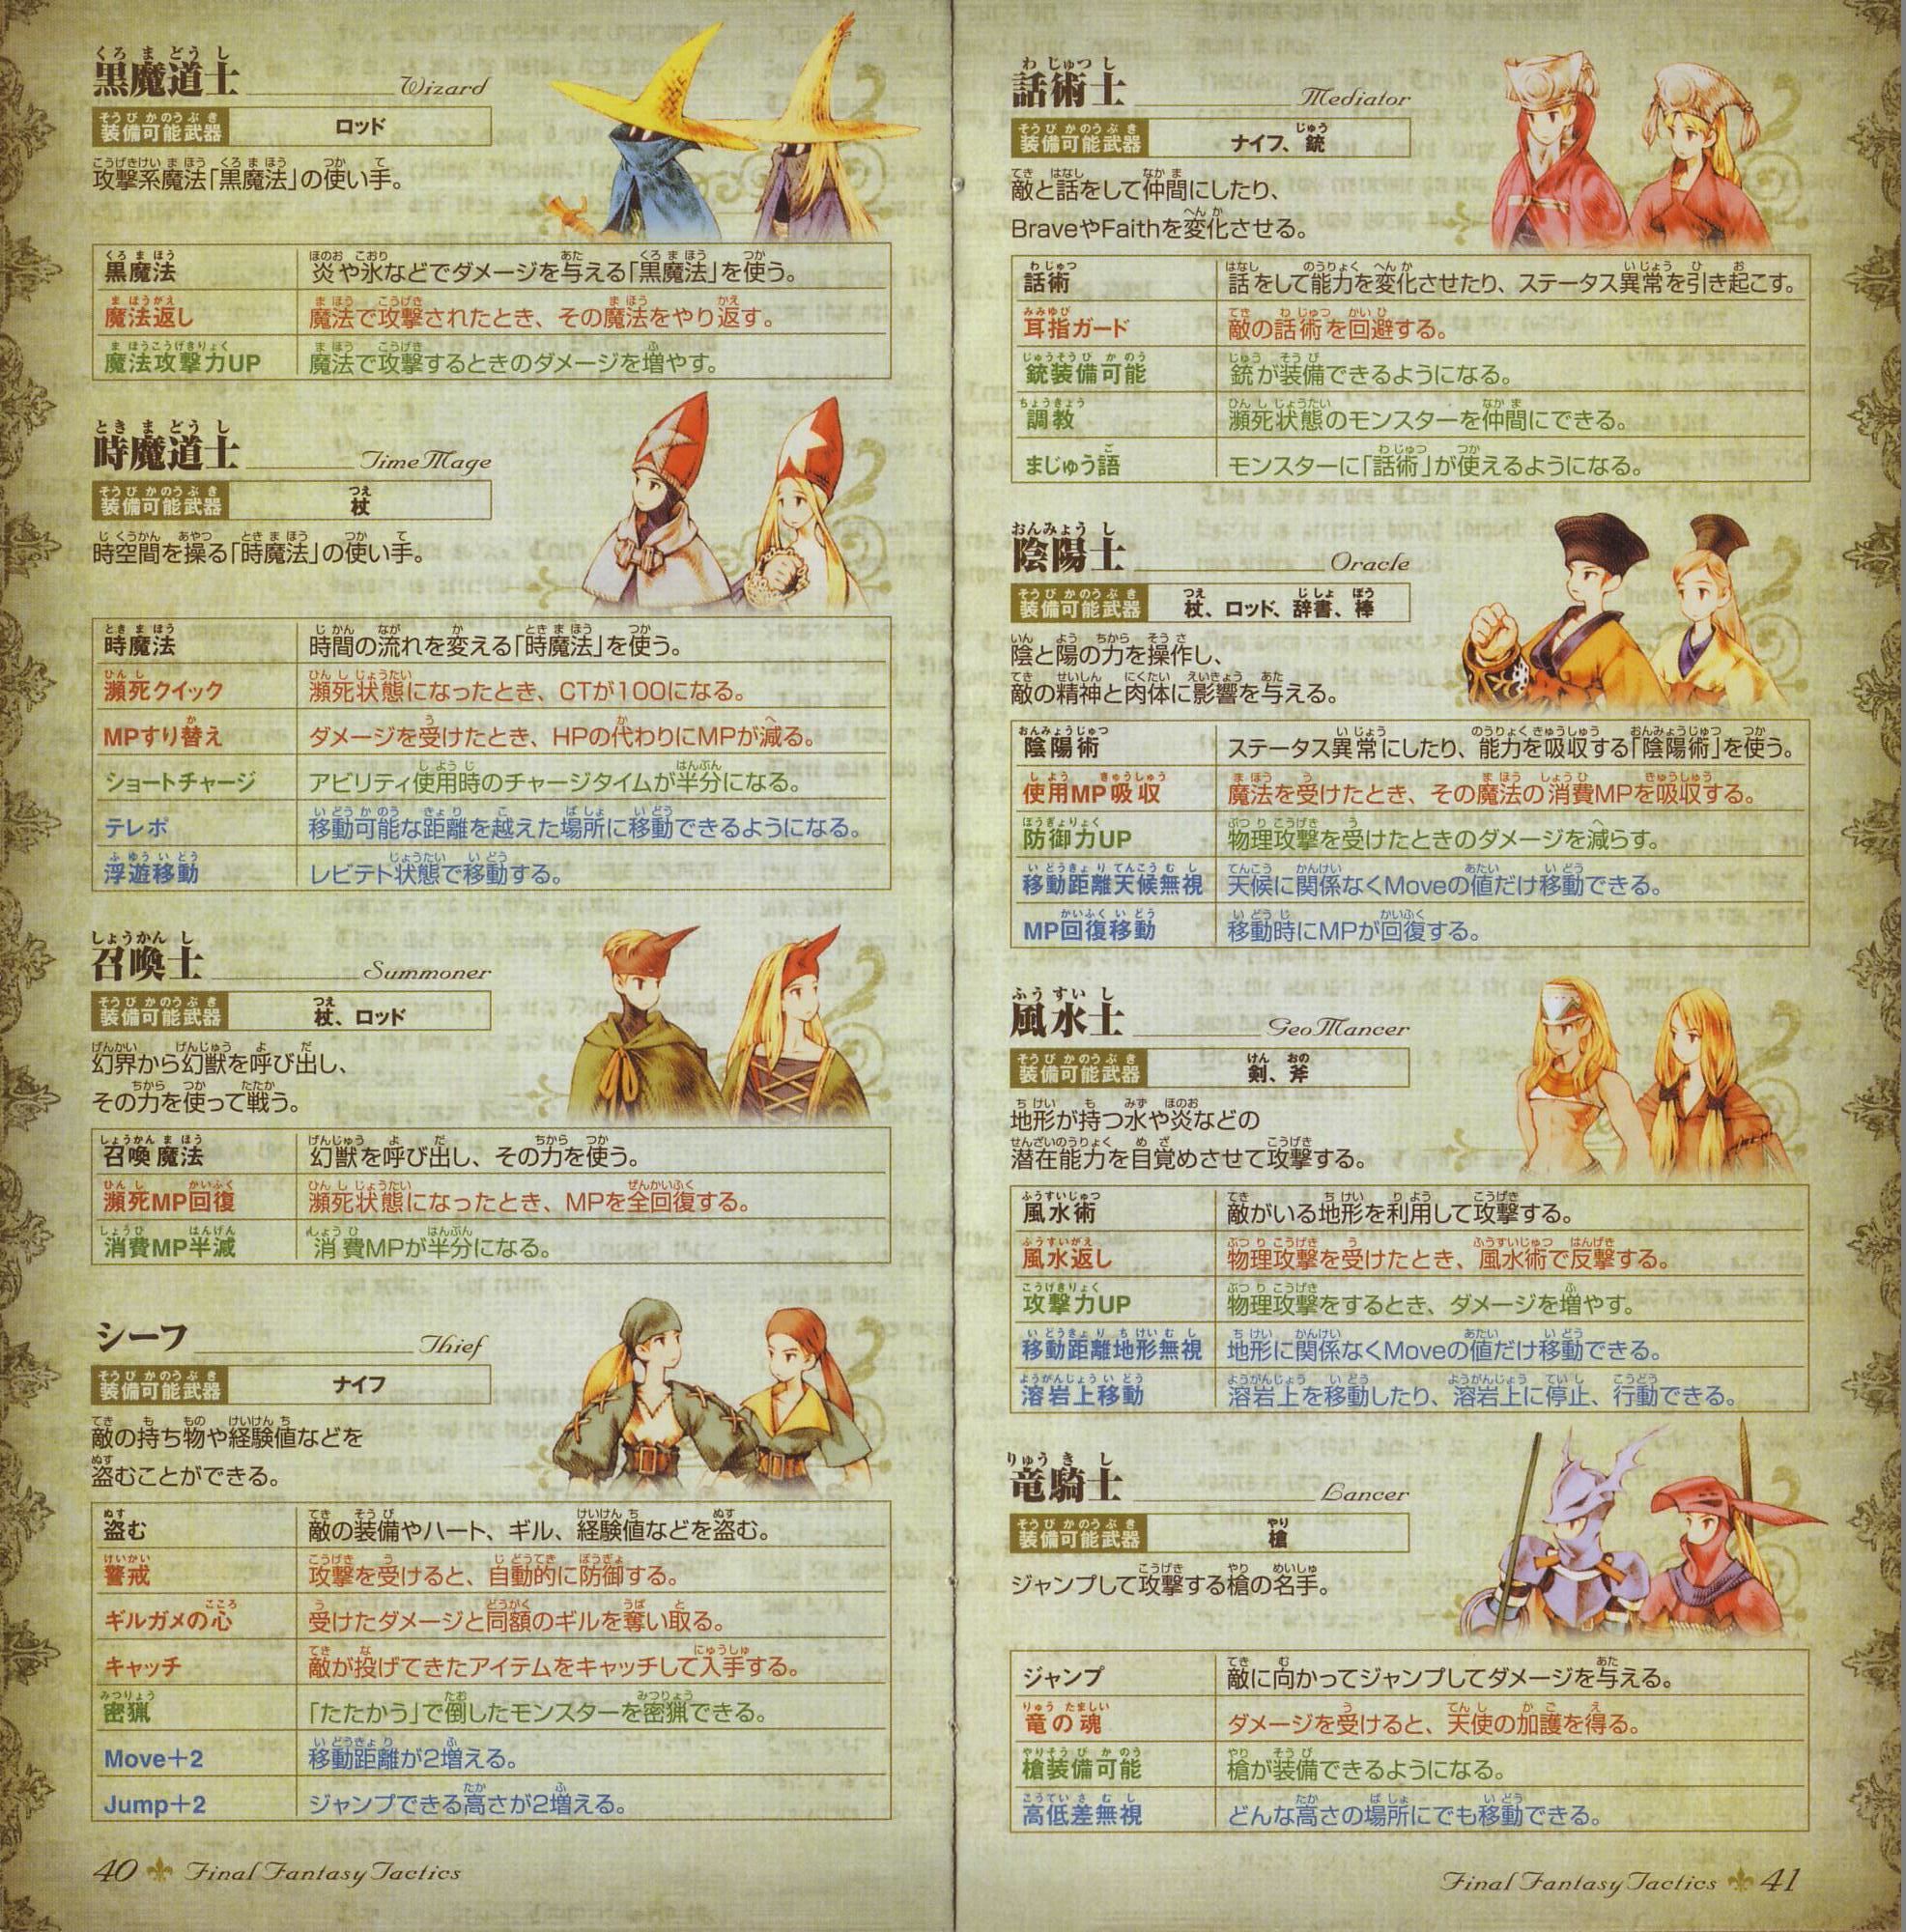 黒魔道士 Wizard
装備可能武器 ロッド
攻撃系魔法「黒魔法」の使い手。
黒魔法 炎や氷などでダメージを与える「黒魔法」を使う。
魔法返し 魔法で攻撃されたとき、その魔法をやり返す。
魔法攻撃力UP 魔法で攻撃するときのダメージを増やす。
時魔道士 TimeMage
装備可能武器 杖
時空間を操る「時魔法」の使い手。
時魔法 時間の流れを変える「時魔法」を使う。
瀕死クイック 瀕死状態になったとき、CTが100になる。
MPすり替え ダメージを受けたとき、HPの代わりにMPが減る。
ショートチャージ アビリティ使用時のチャージタイムが半分になる。
テレポ 移動可能な距離を越えた場所に移動できるようになる。
浮遊移動 レビテト状態で移動する。
召喚士 Summoner
装備可能武器 杖、ロッド
幻界から幻獣を呼び出し、
その力を使って戦う。
召喚魔法 幻獣を呼び出し、その力を使う。
瀕死MP回復 瀕死状態になったとき、MPを全回復する。
消費MP半減 消費MPが半分になる。
シーフ Thief
装備可能武器 ナイフ
敵の持ち物や経験値などを
盗むことができる。
盗む 敵の装備やハート、ギル、経験値などを盗む。
警戒 攻撃を受けると、自動的に防御する。
ギルガメの心 受けたダメージと同額のギルを奪い取る。
キャッチ 敵が投げてきたアイテムをキャッチして入手する。
密猟 「たたかう」で倒したモンスターを密猟できる。
Move+2 移動距離が2増える。
Jump+2 ジャンプできる高さが2増える。
40 Final Fantasy Tactics
話術士 Mediator
装備可能武器 ナイフ、銃
敵と話をして仲間にしたり、
BraveやFaithを変化させる。
話術 話をして能力を変化させたり、ステータス異常を引き起こす。
耳指ガード 敵の話術を回避する。
銃装備可能 銃が装備できるようになる。
調教 瀕死状態のモンスターを仲間にできる。
まじゅう語 モンスターに「話術」が使えるようになる。
陰陽士 Oracle
装備可能武器 杖、ロッド、辞書、棒
陰と陽の力を操作し、
敵の精神と肉体に影響を与える。
陰陽術 ステータス異常にしたり、能力を吸収する「陰陽術」を使う。
使用MP吸収 魔法を受けたとき、その魔法の消費MPを吸収する。
防御力UP 物理攻撃を受けたときのダメージを減らす。
移動距離天候無視 天候に関係なくMoveの値だけ移動できる。
MP回復移動 移動時にMPが回復する。
風水士 GeoMancer
装備可能武器 剣、斧
地形が持つ水や炎などの
潜在能力を目覚めさせて攻撃する。
風水術 敵がいる地形を利用して攻撃する。
風水返し 物理攻撃を受けたとき、風水術で反撃する。
攻撃力UP 物理攻撃をするとき、ダメージを増やす。
移動距離地形無視 地形に関係なくMoveの値だけ移動できる。
溶岩上移動 溶岩上を移動したり、溶岩上に停止、行動できる。
竜騎士 Lancer
装備可能武器 槍
ジャンプして攻撃する槍の名手。
ジャンプ 敵に向かってジャンプしてダメージを与える。
竜の魂 ダメージを受けると、天使の加護を得る。
槍装備可能 槍が装備できるようになる。
高低差無視 どんな高さの場所にでも移動できる。
Final Fantasy Tactics 41